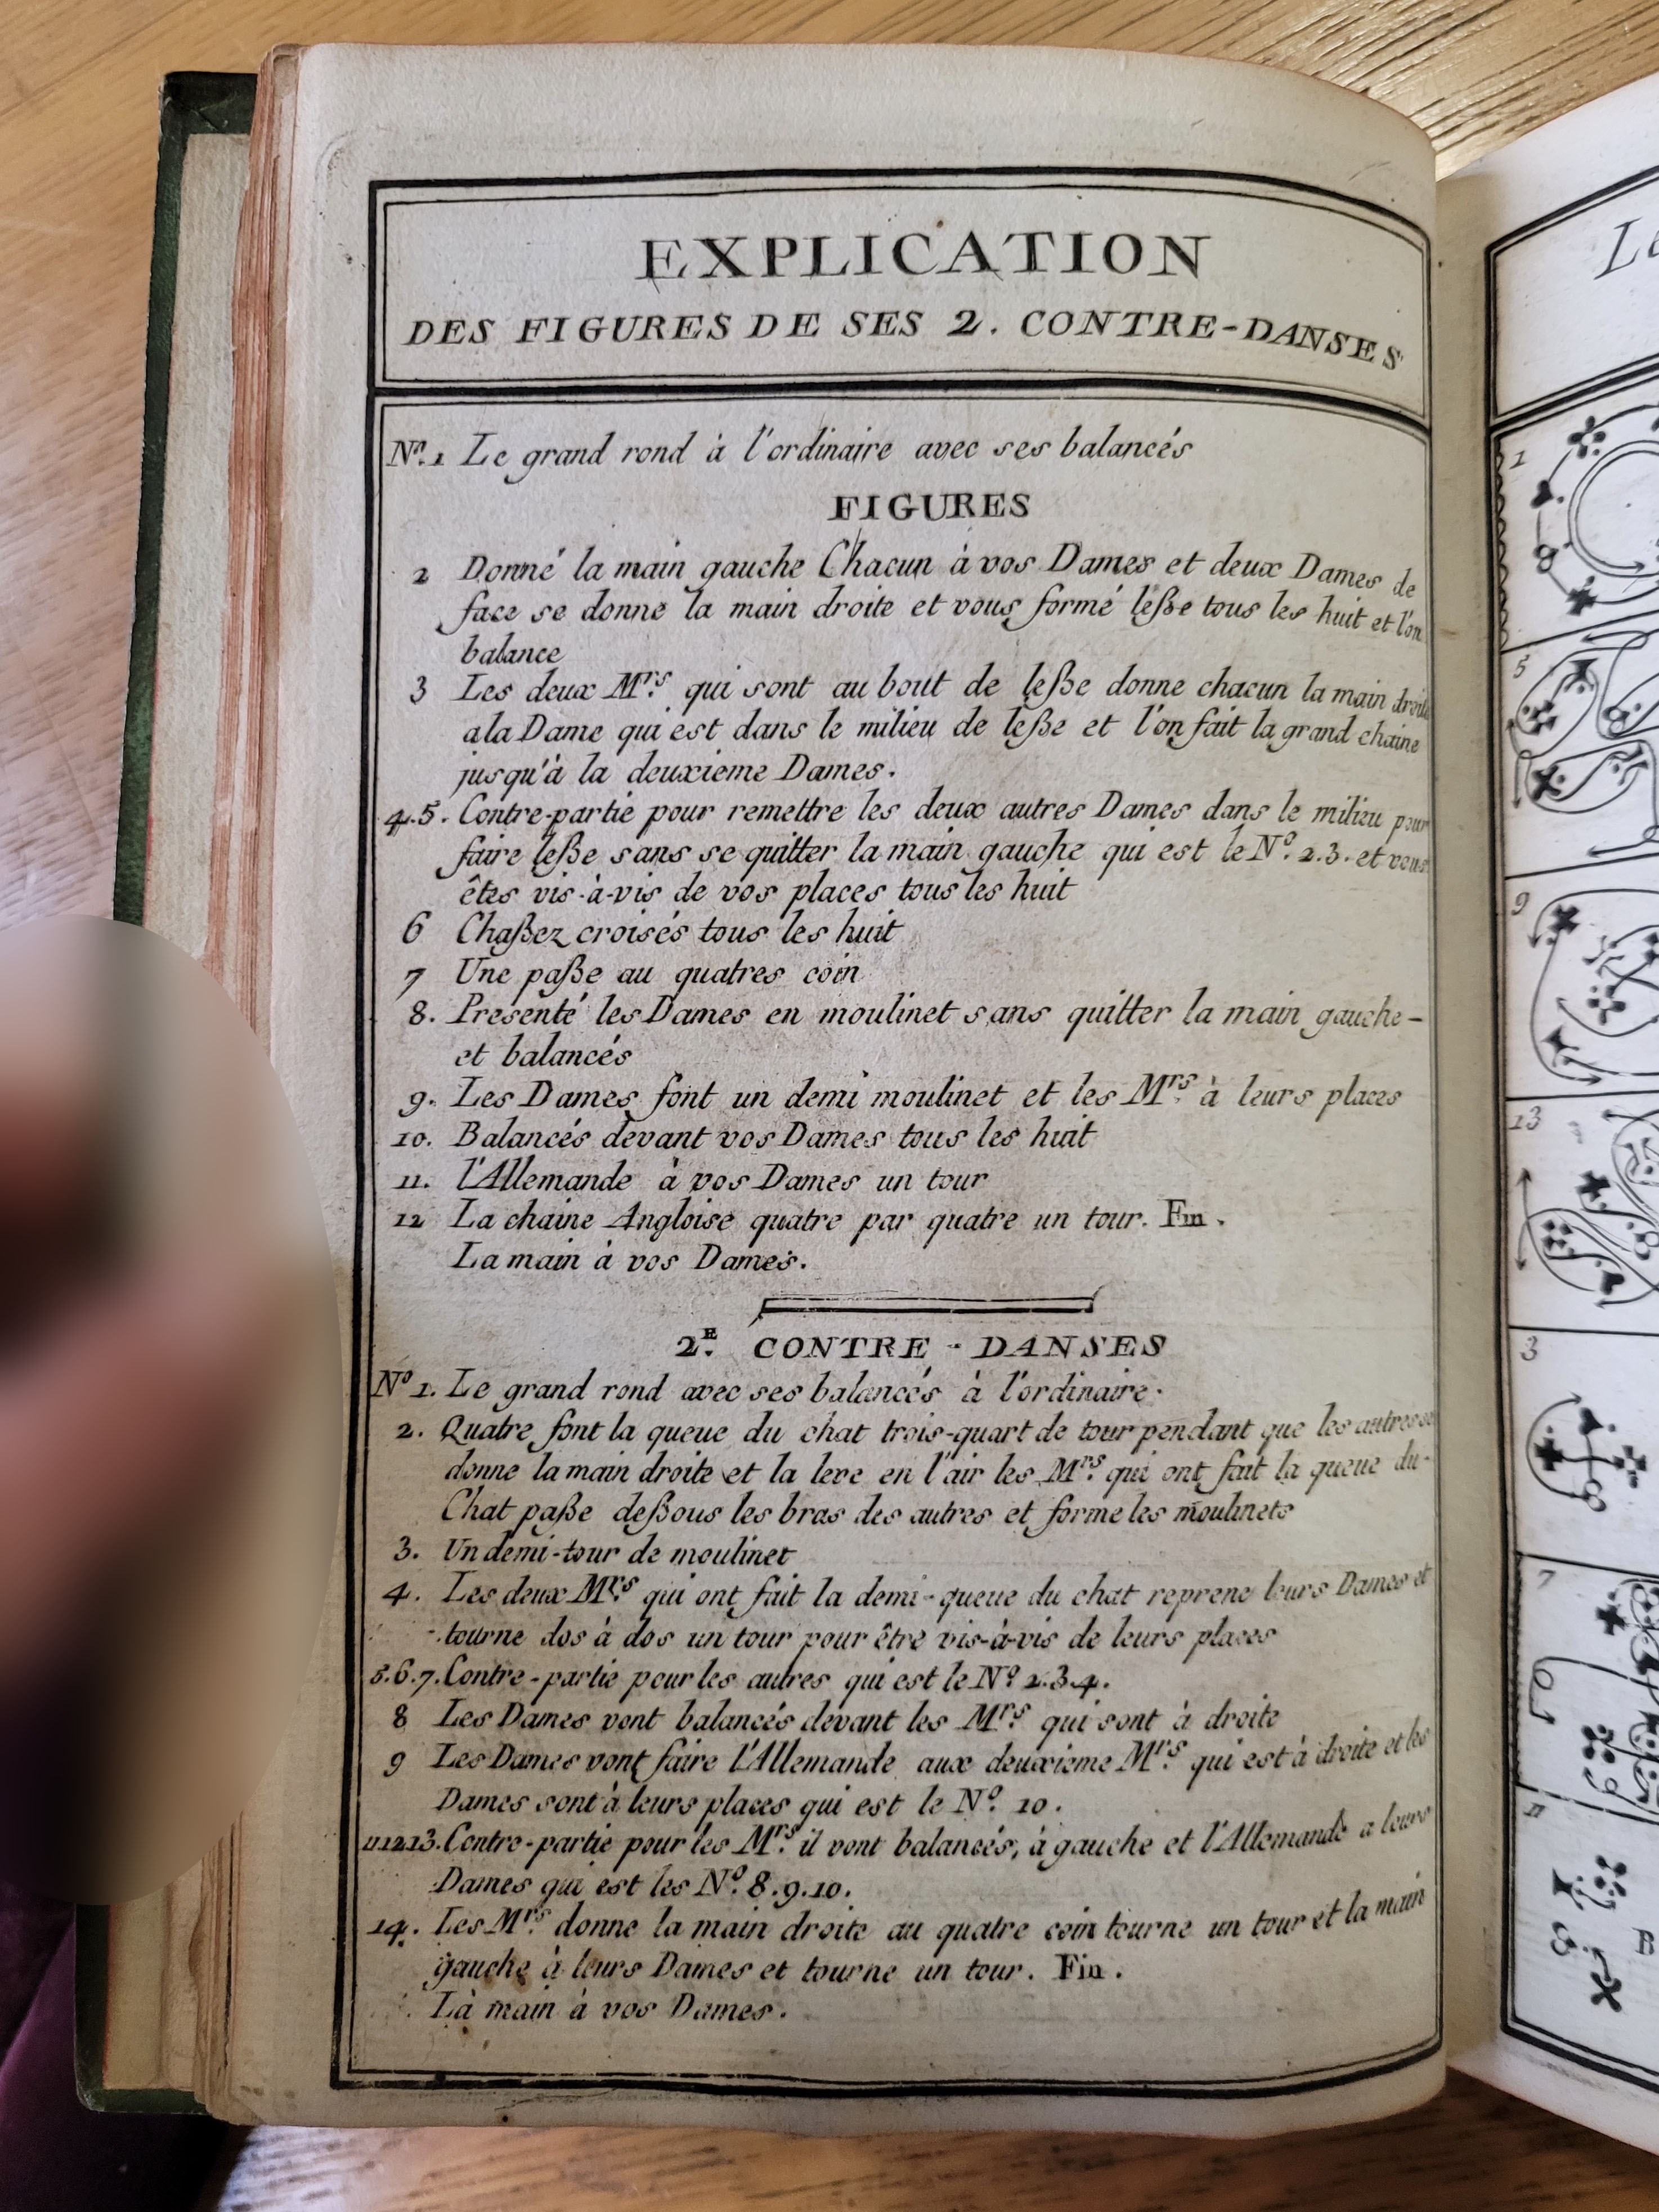 EXPLICATION
DES FIGURES DE SES 2. CONTRE-DANSES
Nº. 1 Le grand rond à l'ordinaire avec ses balancés
FIGURES
2 Donné la main gauche Chacun à vos Dames et deux Dames de
face se donne la main droite et vous formé leße tous les huit et l'on
balance
3 Les deux Mrs. qui sont au bout de leße donne chacun la main droite
a la Dame qui est dans le milieu de leße et l'on fait la grand chaine
jusqu'à la deuxieme Dames.
4.5. Contre-partie pour remettre les deux autres Dames dans le milieu pour
faire leße sans se quitter la main gauche qui est le Nº. 2.3. et vous
êtes vis-à-vis de vos places tous les huit
6 Chaßez croisés tous les huit
7 Une paße au quatres coin
8. Presenté les Dames en moulinet sans quitter la main gauche-
et balancés
9. Les Dames font un demi moulinet et les Mrs. à leurs places
10. Balancés devant vos Dames tous les huit
11. l'Allemande à vos Dames un tour
12 La chaine Angloise quatre par quatre un tour. Fin.
La main à vos Dames.
2.E CONTRE-DANSES
Nº 1. Le grand rond avec ses balancés à l'ordinaire.
2. Quatre font la queue du chat trois-quart de tour pendant que les autres se
donne la main droite et la leve en l'air les Mrs. qui ont fait la queue du-
Chat paße deßous les bras des autres et forme les moulinets
3. Un demi-tour de moulinet
4. Les deux Mrs. qui ont fait la demi-queue du chat reprene leurs Dames et
tourne dos à dos un tour pour être vis-à-vis de leurs places
5.6.7. Contre-partie pour les autres qui est le Nº 2.3.4.
8 Les Dames vont balancés devant les Mrs. qui sont à droite
9 Les Dames vont faire l'Allemande aux deuxieme Mrs. qui est à droite et les
Dames sont à leurs places qui est le Nº. 10.
11.12.13. Contre-partie pour les Mrs. il vont balancés, à gauche et l'Allemande a leurs
Dames qui est les Nº. 8.9.10.
14. Les Mrs. donne la main droite au quatre coin tourne un tour et la main
gauche à leurs Dames et tourne un tour. Fin.
Là main à vos Dames.
Le
1
5
9
13
3
7
11
B